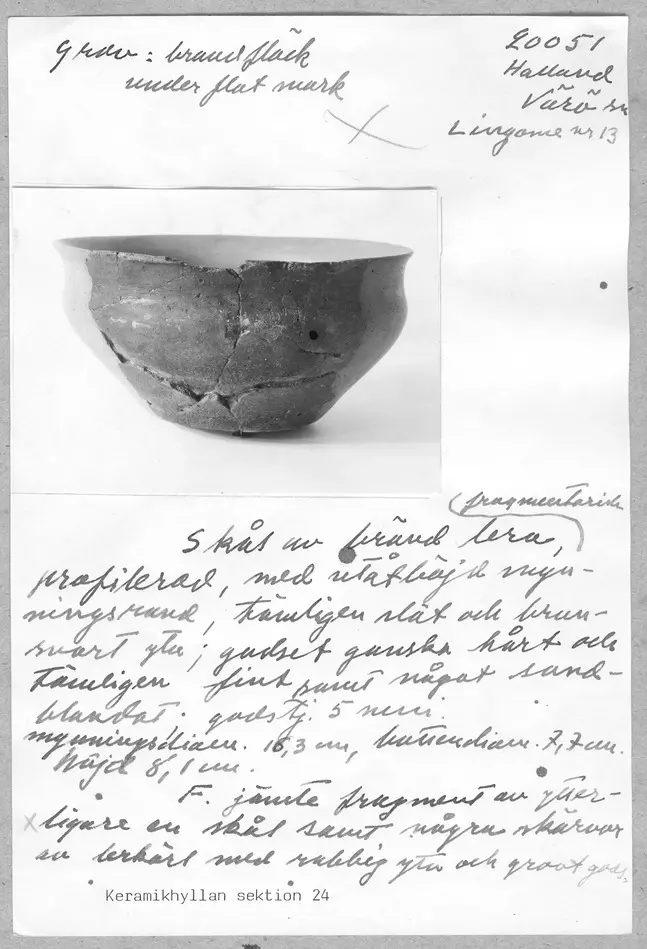 Grav: brandfläck
under flat mark
20051
Halland
Värö sn
Lingome nr 13
fragmentarisk
Skål av bränd lera,
profilerad, med utåtböjd myn-
ningsrand, tämligen slät och brun-
svart yta; godset ganska hårt och
tämligen fint samt något sand-
blandat; godstj. 5 mm.
mynningsdiam. 16,3 cm, bottendiam. 7,7 cm.
Höjd 8,1 cm.
F. jämte fragment av ytter-
ligare en skål samt några skärvor
av lerkärl med rabbig yta och grovt gods.
Keramikhyllan sektion 24